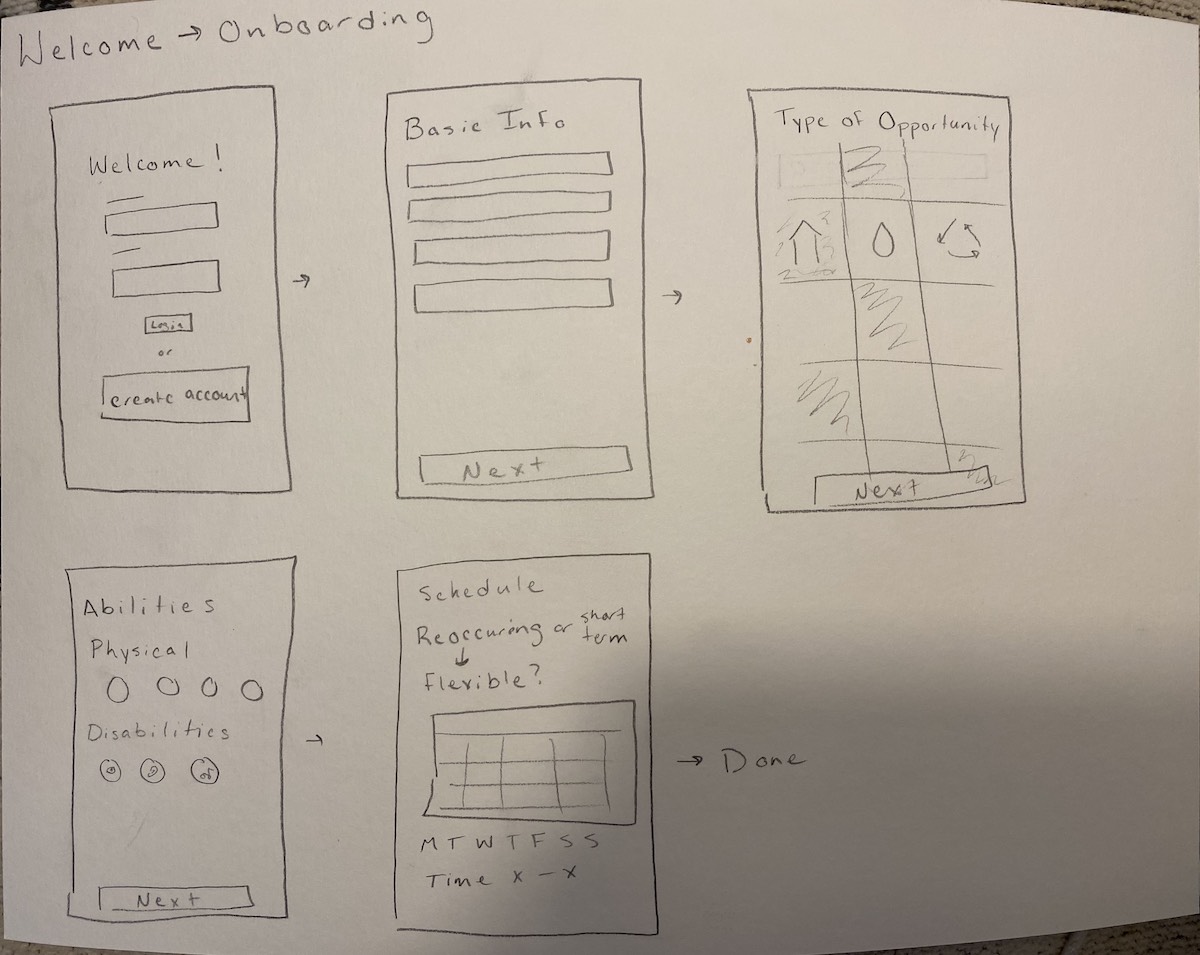 Welcome → Onboarding
Welcome!
Login
or
create account
→
Basic Info
Next
→
Type of Opportunity
Next
Abilities
Physical
Disabilities
Next
→
Schedule
Reoccuring or short term
↓
Flexible?
M T W T F S S
Time x – x
→ Done